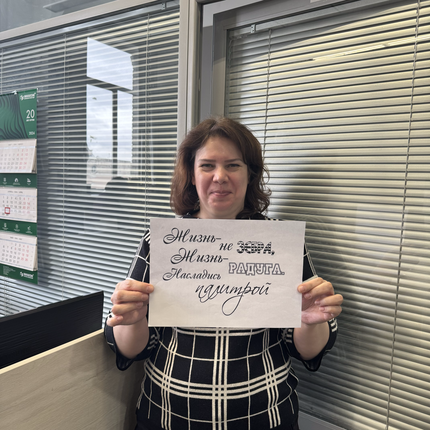 20
Жизнь-
не ЗЕБРА,
Жизнь-
РАДУГА.
Насладись
палитрой